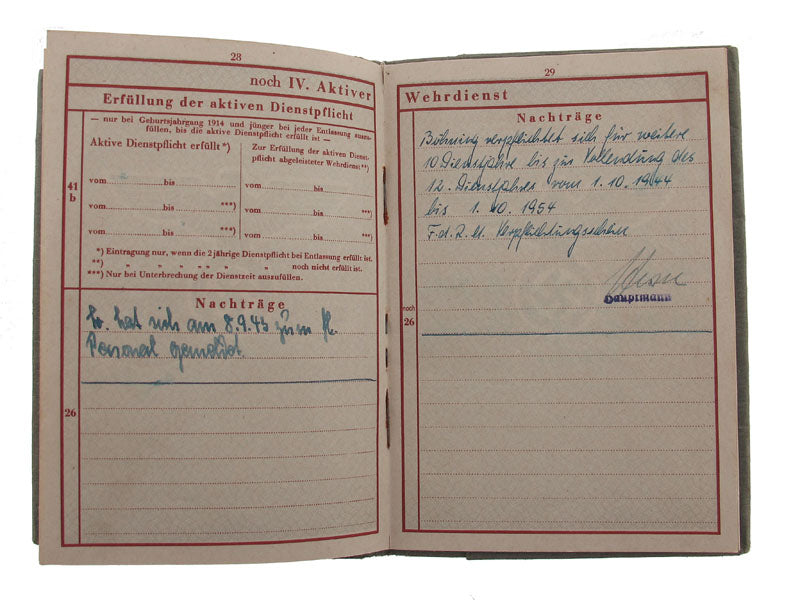 28
noch IV. Aktiver
Erfüllung der aktiven Dienstpflicht
— nur bei Geburtsjahrgang 1914 und jünger bei jeder Entlassung auszu-
füllen, bis die aktive Dienstpflicht erfüllt ist —
Aktive Dienstpflicht erfüllt*)
vom bis
vom bis ***)
vom bis ***)
Zur Erfüllung der aktiven Dienst-
pflicht abgeleisteter Wehrdienst**)
vom bis
vom bis ***)
vom bis ***)
41
b
*) Eintragung nur, wenn die 2 jährige Dienstpflicht bei Entlassung erfüllt ist.
**) " " " " " " noch nicht erfüllt ist.
***) Nur bei Unterbrechung der Dienstzeit auszufüllen.
Nachträge
hat sich am 8.9.43 zum fl.
Personal gemeldet
26
29
Wehrdienst
Nachträge
Böhning verpflichtet sich für weitere
10 Dienstjahre bis zur Vollendung des
12. Dienstjahres vom 1.10.1944
bis 1.10.1954
F.d.R.d. Verpflichtungsschein
Hauptmann
noch
26